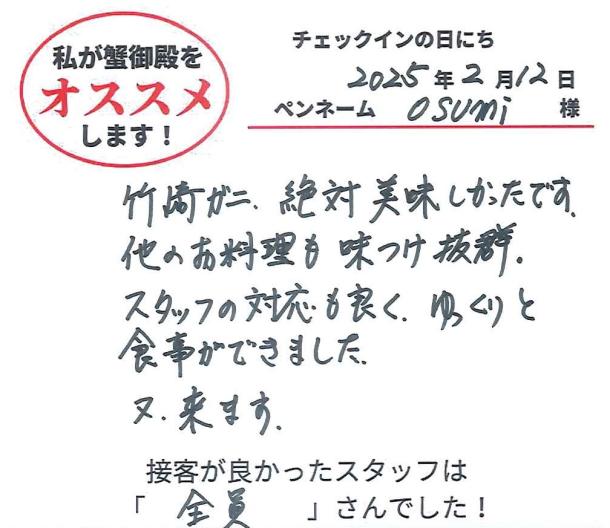 私が蟹御殿を
オススメ
します！
チェックインの日にち
2025年2月12日
ペンネーム OSUMi 様
竹崎ガニ、絶対美味しかったです。
他のお料理も味つけ抜群。
スタッフの対応も良く、ゆっくりと
食事ができました。
又、来ます。
接客が良かったスタッフは
「 全員 」さんでした！